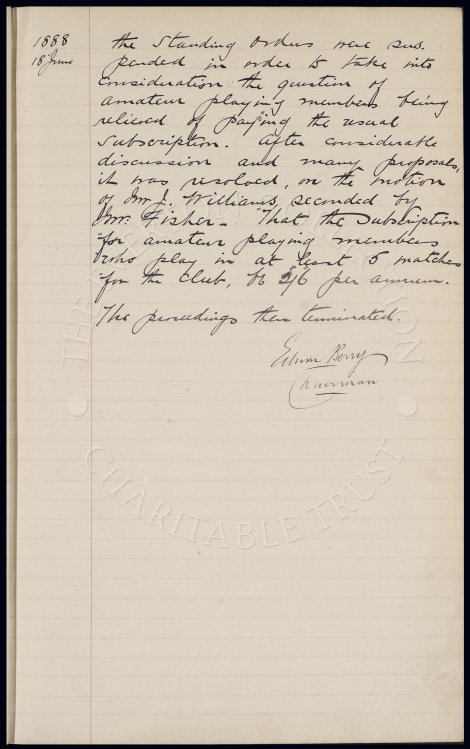 1888
18 June
the Standing Orders were sus-
pended in order to take into
consideration the question of
amateur playing members being
relieved of paying the usual
subscription. After considerable
discussion and many proposals,
it was resolved, on the motion
of Mr J. Williams, seconded by
Mr. Fisher – "That the Subscription
"for amateur playing members
"who play in at least 5 matches
"for the club, be 2/6 per annum.
The proceedings then terminated.
Edwin Berry
Chairman
CHARITABLE TRUST